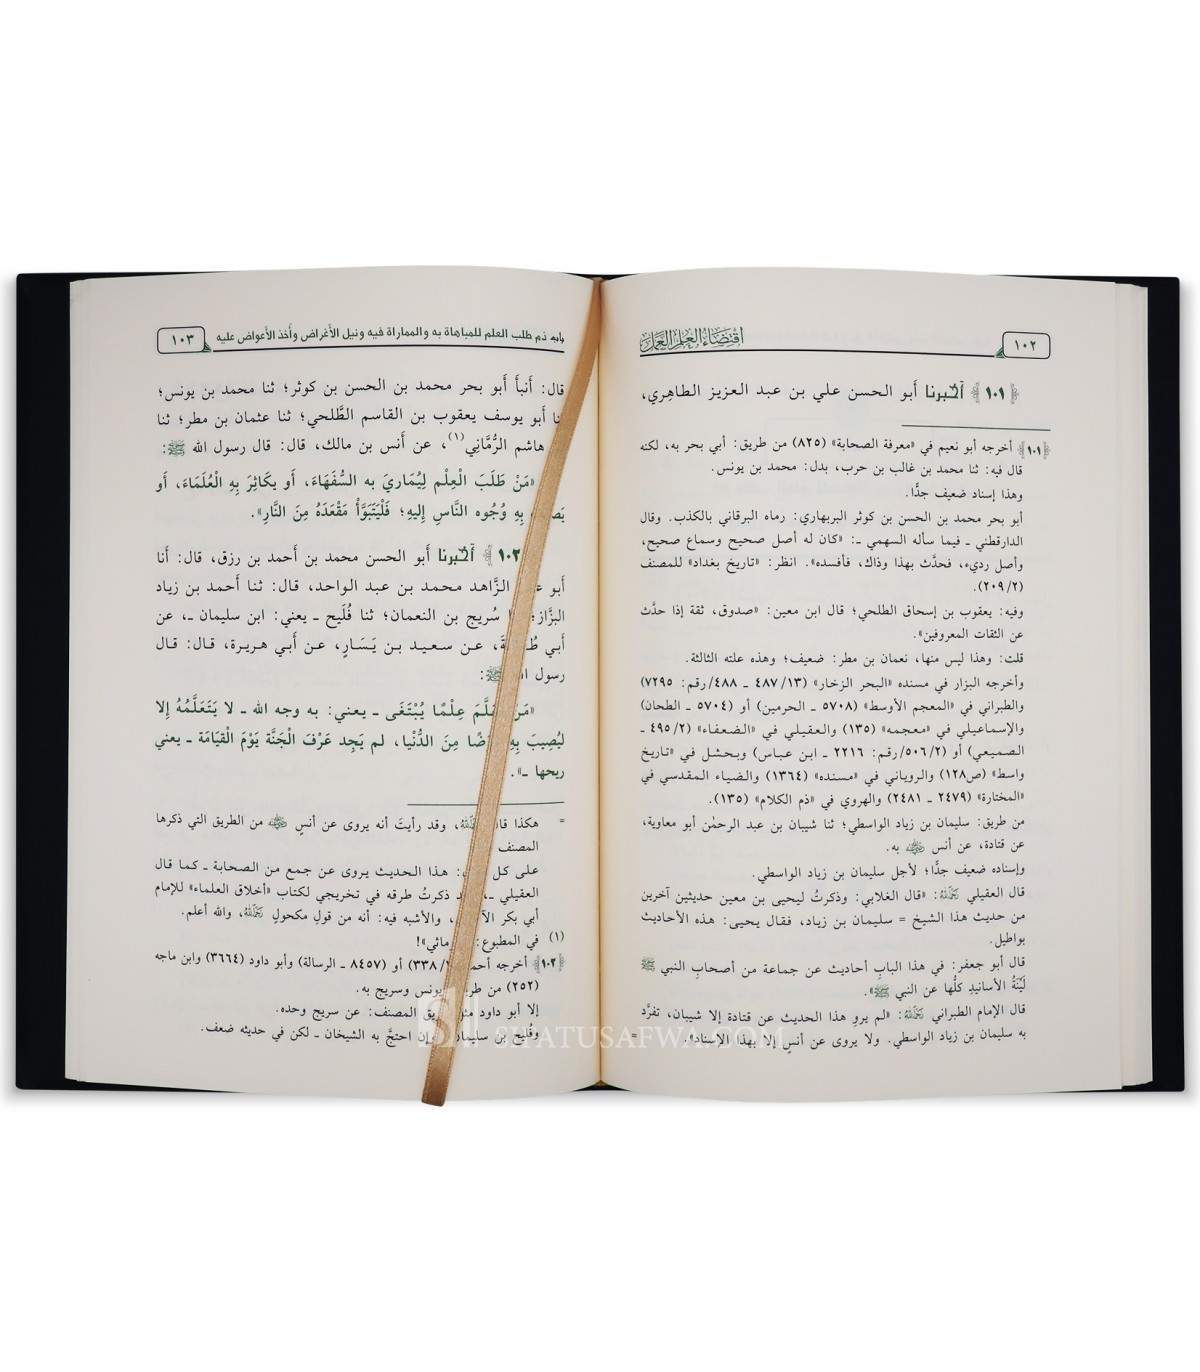 ١٠٢
اقتضاء العلم العمل
١٠١ أخبرنا أبو الحسن علي بن عبد العزيز الطاهِري،
١٠١ أخرجه أبو نعيم في «معرفة الصحابة» (٨٢٥) من طريق: أبي بحر به، لكنه
قال فيه: ثنا محمد بن غالب بن حرب، بدل: محمد بن يونس.
وهذا إسناد ضعيف جدًّا.
أبو بحر محمد بن الحسن بن كوثر البربهاري: رماه البرقاني بالكذب. وقال
الدارقطني ـ فيما سأله السهمي ـ: «كان له أصل صحيح وسماع صحيح،
وأصل رديء، فحدَّث بهذا وذاك، فأفسده». انظر: «تاريخ بغداد» للمصنف
(٢٠٩/٢).
وفيه: يعقوب بن إسحاق الطلحي؛ قال ابن معين: «صدوق، ثقة إذا حدَّث
عن الثقات المعروفين».
قلت: وهذا ليس منها، نعمان بن مطر: ضعيف؛ وهذه علته الثالثة.
وأخرجه البزار في مسنده «البحر الزخار» (٤٨٧/١٣ ـ ٤٨٨/رقم: ٧٢٩٥)
والطبراني في «المعجم الأوسط» (٥٧٠٨ ـ الحرمين) أو (٥٧٠٤ ـ الطحان)
والإسماعيلي في «معجمه» (١٣٥) والعقيلي في «الضعفاء» (٤٩٥/٢ ـ
الصميعي) أو (٥٠٦/٢/رقم: ٢٢١٦ ـ ابن عباس) وبحشل في «تاريخ
واسط» (ص١٢٨) والروياني في «مسنده» (١٣٦٤) والضياء المقدسي في
«المختارة» (٢٤٧٩ ـ ٢٤٨١) والهروي في «ذم الكلام» (١٣٥).
من طريق: سليمان بن زياد الواسطي؛ ثنا شيبان بن عبد الرحمٰن أبو معاوية،
عن قتادة، عن أنس رضي الله عنه به.
وإسناده ضعيف جدًّا؛ لأجل سليمان بن زياد الواسطي.
قال العقيلي رحمه الله: «قال الغلابي: وذكرتُ ليحيى بن معين حديثين آخرين
من حديث هذا الشيخ = سليمان بن زياد، فقال يحيى: هذه الأحاديث
بواطيل.
قال أبو جعفر: في هذا البابِ أحاديث عن جماعة من أصحابِ النبي ﷺ
لَيِّنَةُ الأسانيدِ كلُّها عن النبي ﷺ».
قال الإمام الطبراني رحمه الله: «لم يروِ هذا الحديث عن قتادة إلا شيبان، تفرَّد
به سليمان بن زياد الواسطي. ولا يروى عن أنسٍ إلا بهذا الإسناد».
=
باب ذم طلب العلم للمباهاة به والمماراة فيه ونيل الأغراض وأخذ الأعواض عليه
١٠٣
قال: أَنبأ أَبو بحر محمد بن الحسن بن كوثر؛ ثنا محمد بن يونس؛
أَبو يوسف يعقوب بن القاسم الطَّلحي؛ ثنا عثمان بن مطر؛ ثنا
هاشم الرُّمَّانِي(١)، عن أَنس بن مالك، قال: قال رسول الله ﷺ:
«مَنْ طَلَبَ الْعِلْم لِيُمَارِيَ به السُّفَهَاءَ، أَو يكَاثِرَ بِهِ الْعُلَمَاءَ، أَو
بِهِ وُجُوه النَّاسِ إليهِ؛ فَلْيَتَبَوَّأْ مَقْعَدَهُ مِنَ النَّارِ».
١٠٢ أخبرنا أَبو الحسن محمد بن أَحمد بن رزق، قال: أَنا
أَبو الزَّاهد محمد بن عبد الواحد، قال: ثنا أَحمد بن زياد
البزَّاز؛ سُريج بن النعمان؛ ثنا فُلَيح ـ يعني: ابن سليمان ـ، عن
أَبي عن سعيد بن يَسَارٍ، عن أَبي هريرة، قال: قال
رسول ﷺ:
عِلْمًا يُبْتَغَى ـ يعني: به وجه الله ـ لا يَتَعَلَّمُهُ إِلا
ليُصِيبَ بِهِ مِنَ الدُّنْيا، لم يَجِد عَرْفَ الْجَنَّة يَوْمَ الْقِيَامَة ـ يعني
ريحها ـ».
= هكذا وقد رأيتَ أنه يروى عن أنسٍ رضي الله عنه من الطريق التي ذكرها
المصنف
على كل هذا الحديث يروى عن جمع من الصحابة ـ كما قال
العقيلي ـ، ذكرتُ طرقه في تخريجي لكتاب «أخلاق العلماء» للإمام
أبي بكر والأشبه فيه: أنه من قولِ مكحولٍ رحمه الله، والله أعلم.
(١) في المطبوع:
١٠٢ أخرجه أحمد أو (٨٤٥٧ ـ الرسالة) وأبو داود (٣٦٦٤) وابن ماجه
(٢٥٢) من يونس وسريج به.
إلا أبو داود المصنف: عن سريج وحده.
وفليح بن سليمان احتجَّ به الشيخان ـ لكن في حديثه ضعف.
SIFATUSAFWA.COM